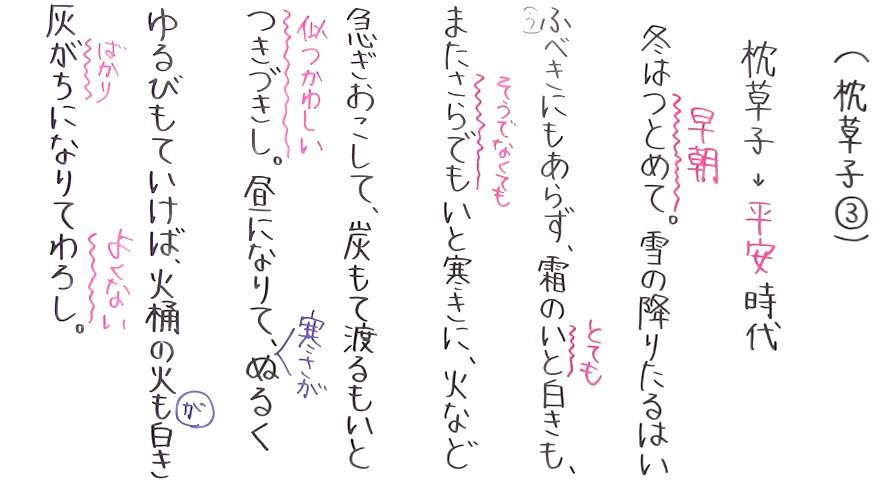 (枕草子③)
枕草子→平安時代
早朝
冬はつとめて。雪の降りたるはい
とても
ふべきにもあらず、霜のいと白きも、
(う)
そうでなくても
またさらでもいと寒きに、火など
急ぎおこして、炭もて渡るもいと
似つかわしい
つきづきし。昼になりて、ぬるく
寒さが
ゆるびもていけば、火桶の火も白き
が
ばかり
よくない
灰がちになりてわろし。